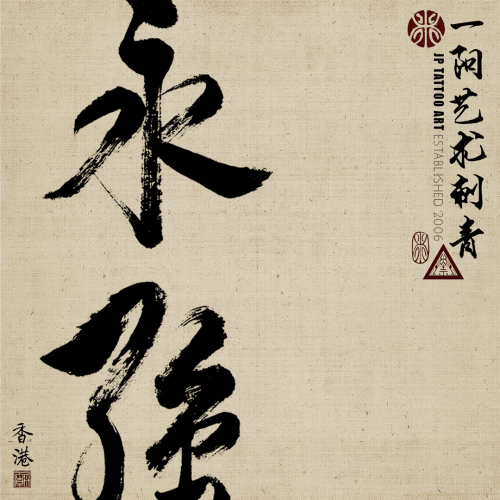 一阳艺术刺青
JP TATTOO ART ESTABLISHED 2006
永强
香港